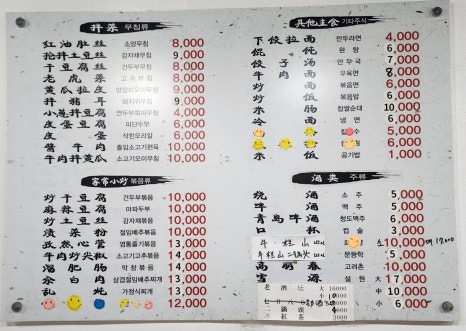 拌菜 무침류
红油肚丝 소양무침 8,000
抢拌土豆丝 감자채무침 9,000
干豆腐丝 건두부무침 8,000
老虎菜 고수무침 8,000
黄瓜拉皮 9,000
拌猪耳 돼지귀무침 9,000
小葱拌豆腐 연두부쪽파무침 4,000
皮蛋豆腐 피단두부 6,000
皮蛋 삭힌오리알 6,000
酱牛肉 졸임소고기편육 10,000
牛肉拌黄瓜 소고기오이무침 10,000
家常小炒 볶음류
炒干豆腐 건두부볶음 10,000
麻辣豆腐 마파두부 10,000
炒土豆丝 감자채볶음 10,000
渍菜粉 절임배추볶음 10,000
孜然心管 염통줄기볶음 13,000
牛肉炒尖椒 소고기고추볶음 14,000
溜肥肠 막창볶음 14,000
汆白肉 삼겹절임배추찌개 13,000
乱炖 가정식찌개 13,000
12,000
其他主食 기타주식
下饺拉面 만두라면 4,000
馄饨 완탕 6,000
饺子汤 만두국 7,000
牛肉面 우육면 8,000
炒面 볶음면 6,000
炒饭 볶음밥 6,000
米肠 찹쌀순대 10,000
冷面 냉면 6,000
5,000
6,000
米饭 공기밥 1,000
酒类 주류
烧酒 소주 5,000
啤酒 맥주 5,000
青岛啤酒 청도맥주 6,000
口杯 컵술 3,000
牛栏山 소 10,000 대 17,000
牛栏山二锅头
문등학 5,000
高丽春 고려촌 5,000
雪原 설원 大 17,000
中 10,000
小 6,000
老酒 大 16000
小 10000